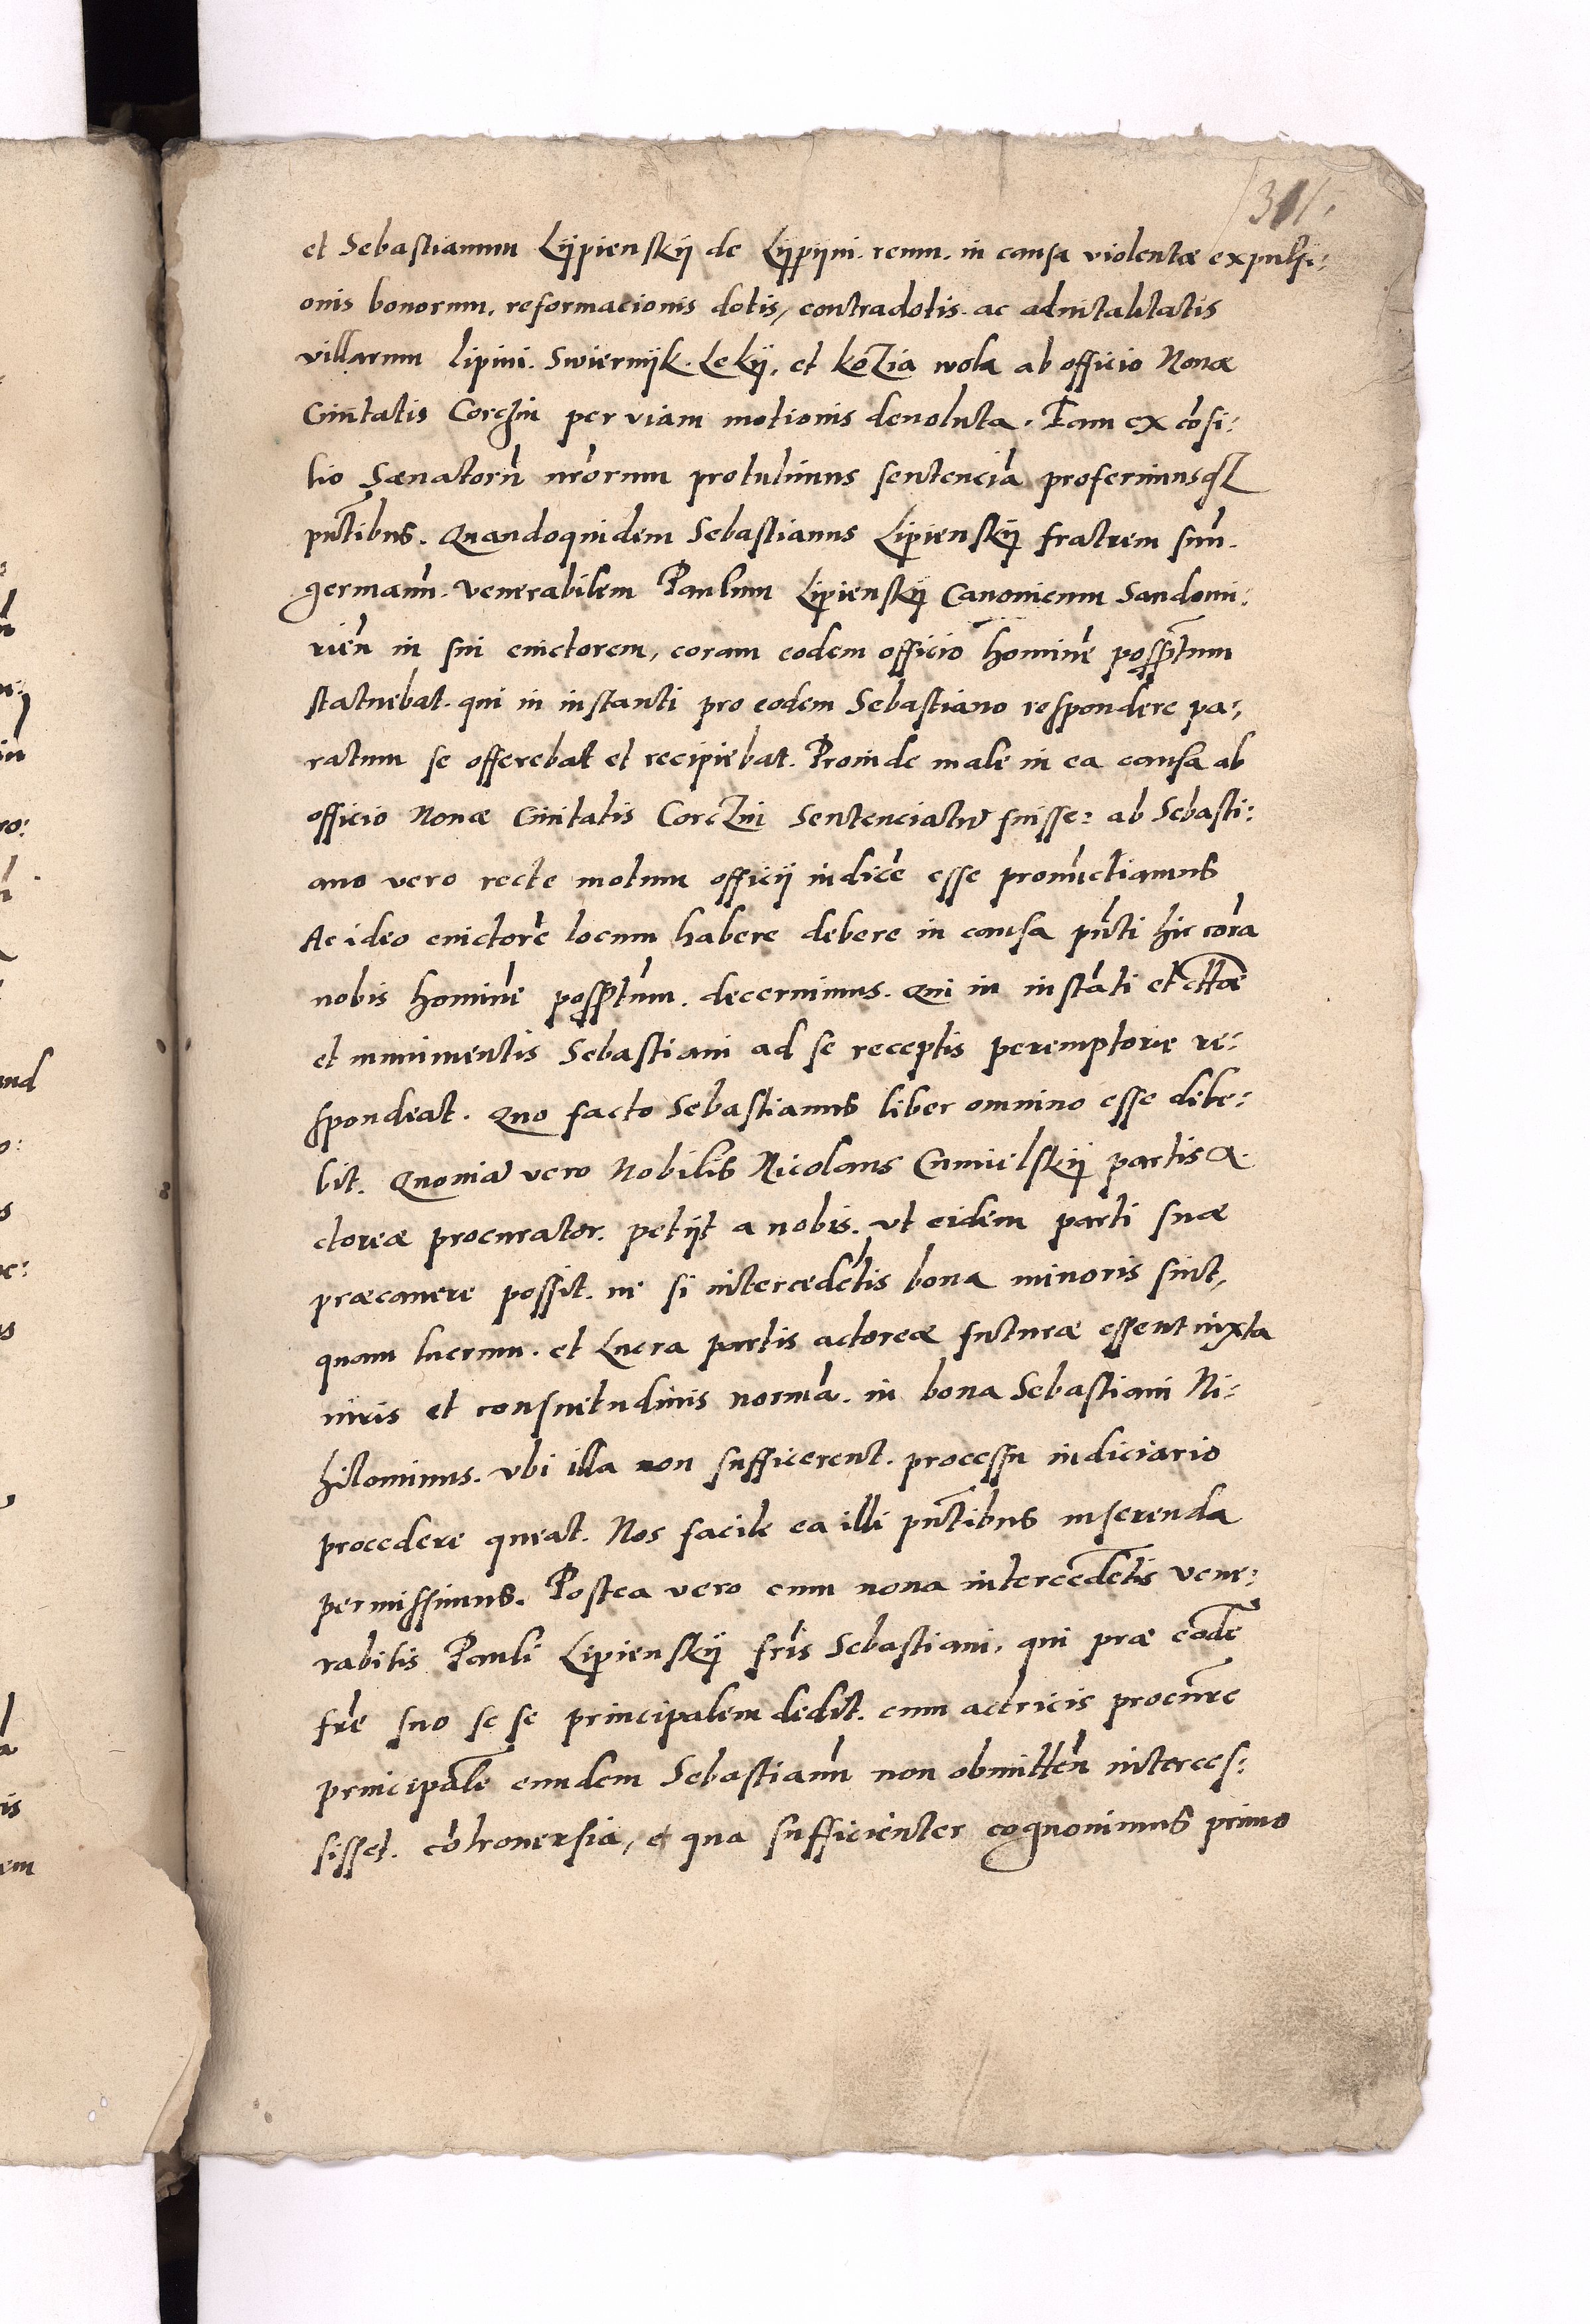 311.
et Sebastianum Lÿpienskÿ de Lÿpÿni. reum. in causa violentæ expulsi:
onis bonorum, reformacionis dotis, contradotis. ac aduitalitatis
villarum lipini. Swiernÿk. Lekÿ, et koZia wola ab officio Nouæ
Ciuitatis Corczin per viam motionis deuoluta. Eam ex cōsi:
lio Sænatorū nr̄orum protulimus sentenciā proferimusq̄
pn̄tibus. Quandoquidem Sebastianus Lipienskÿ fratrem suū.
germanū. venerabilem Paulum Lipienskÿ Canonicum Sandomi:
rien̄ in sui euictorem, coram eodem officio hominē possr̄tum
statuebat. qui in instanti pro eodem Sebastiano respondere pa:
ratum se offerebat et recipiebat. Proinde male in ea causa ab
officio Nouæ Ciuitatis CorcZin Sentenciatū fuisse: ab Sebasti:
ano vero recte motum officÿ iudicē esse pronūctiamus
Ac ideo euictorē locum habere debere in causa pn̄ti hic corā
nobis hominē possr̄tum. decernimus. Qui in instāti et
et munimentis Sebastiani ad se receptis peremptorie re:
spondeat. Quo facto Sebastianus liber omnino esse debe:
bit. Quoniā vero Nobilis Nicolaus Cumielskÿ partis a.
ctoreæ procurator. petÿt a nobis. vt eidem parti suæ
præcauere possit. ni si intercedētis bona minoris sint,
quam lucrum. et Lucra partis actoreæ futuræ essent iuxta
iuris et consuetudinis normā. in bona Sebastiani Ni:
hilominus. vbi illa non sufficerent. processu iudiciario
procedere queat. Nos facile ea illi pn̄tibus inserenda
permissimus. Postea vero cum noua intercedētis vene:
rabilis Pauli Lipienskÿ fr̄is Sebastiani, qui præ eodē
fr̄e suo se se principalem dedit. cum actricis procur̄e
principalē eundem Sebastianū non obmitten̄ interces:
sisset. cōtrouersia, e qua sufficienter cognouimus primo